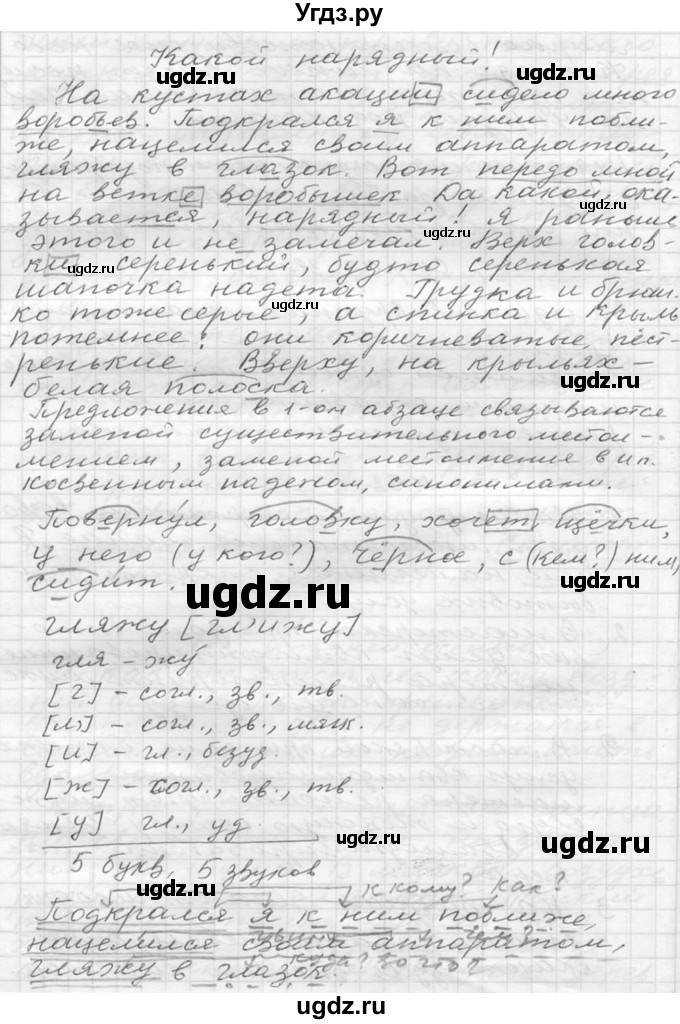 Угдз.ру
Какой нарядный!
На кустах акации сидело много
воробьев. Подкрался я к ним побли-
же, нацелился своим аппаратом,
гляжу в глазок. Вот передо мной
на ветке воробышек. Да какой, ока-
зывается, нарядный! Я раньше
этого и не замечал. Верх голов-
ки серенький, будто серенькая
шапочка надета. Грудка и брюш-
ко тоже серые, а спинка и крылья
потемнее: они коричневатые, пёст-
ренькие. Вверху, на крыльях –
белая полоска.
Предложения в 1-ом абзаце связываются
заменой существительного местои-
мением, заменой местоимение в и.п.
косвенным падежом, синонимами.
Повернул, головку, хочет, щёчки,
у него (у кого?), Чёрное, с (кем?) ним,
сидит.
гляжу [гл'ижу]
гля – жу
[г] – согл., зв., тв.
[л'] – согл., зв., мягк.
[и] – гл., безуд.
[ж] – согл., зв., тв.
[у] гл., уд.
5 букв, 5 звуков
к кому? как?
Подкрался я к ним поближе,
нацелился своим аппаратом,
куда? во что?
гляжу в глазок.
ugdz.ru
ugdz.ru
ugdz.ru
ugdz.ru
ugdz.ru
ugdz.ru
ugdz.ru
ugdz.ru
ugdz.ru
ugdz.ru
ugdz.ru
ugdz.ru
ugdz.ru